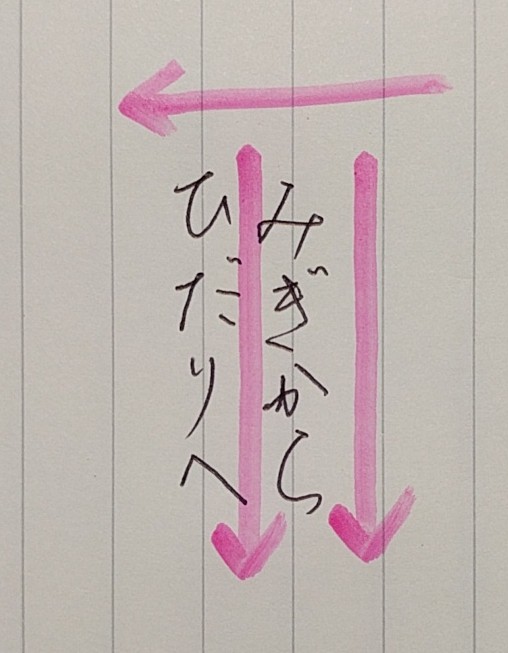 みぎから
ひだりへ